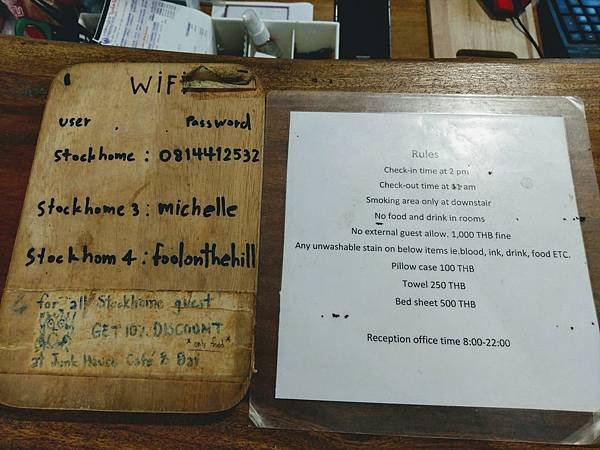 WiFi
user Password
Stockhome : 0814412532
Stockhome 3 : michelle
Stockhom 4 : foolonthehill
for all Stockhome guest
GET 10% DISCOUNT
*only food*
at Junk House Café & Bar
Rules
Check-in time at 2 pm
Check-out time at 11 am
Smoking area only at downstair
No food and drink in rooms
No external guest allow. 1,000 THB fine
Any unwashable stain on below items ie.blood, ink, drink, food ETC.
Pillow case 100 THB
Towel 250 THB
Bed sheet 500 THB
Reception office time 8:00-22:00